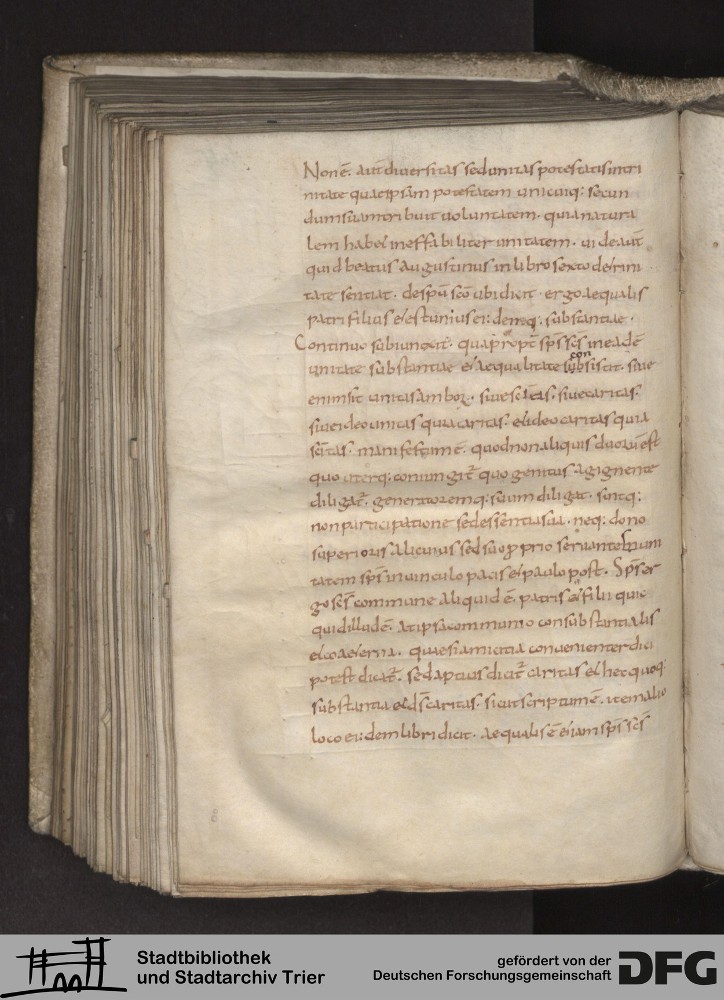 Non ē. aut̄ diuersitas sed unitas potestatis intri
nitate quae ipsam potestatem unicuiq: secun
dum suam tribuit uoluntatem. quia natura
lem habet ineffabiliter unitatem. uideaut̄
quid beatus augustinus in libro sexto detrini
tate sentiat. de sp̄u sc̄o ubi dicit. ergo aequalis
patri filius et est unius eiusdemq: substantiae.
Continuo subiungit. quapropt̄ sp̄s sc̄s in eadē
unitate substantiae et aequalitate subsistit. siue
con
enim sit unitas amboꝝ. siue sc̄itas. siue caritas.
siue ideo unitas quia caritas. et ideo caritas quia
sc̄itas. manifestum ē. quod non aliquis duorū est
quo uterq: coniungit̄ quo genitus a gignente
diligat̄. generatoremq: suum diligat. sintq:
non participatione sed essentia sua. neq: dono
superioris alicuius sed suo proprio seruantes uni
tatem sp̄s in uinculo pacis et paulo post. Sp̄s er
go sc̄s commune aliquid ē. patris et filii quic
quid illud ē. at ipsa communio consubstantialis
et coaeterna. quae si amicitia conuenienter dici
potest dicat̄. sed aptius dicit̄ caritas et hec quoq:
substantia et d̄s caritas. sicut scriptum ē. item alio
loco eiusdem libri dicit. aequalis ē etiam sp̄s sc̄s
Stadtbibliothek
und Stadtarchiv Trier
gefördert von der
Deutschen Forschungsgemeinschaft
DFG